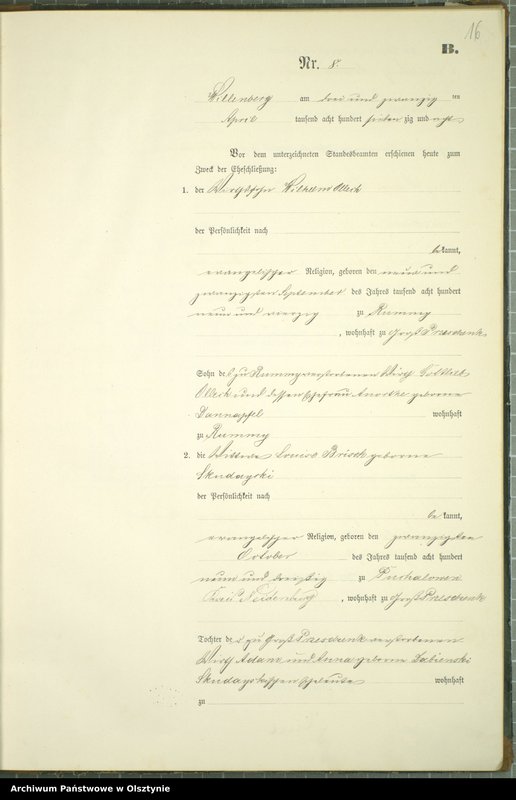 16
B.
Nr. 8.
Willenberg am drei und zwanzig ten
April tausend acht hundert sieben zig und acht
Vor dem unterzeichneten Standesbeamten erschienen heute zum
Zweck der Eheschließung:
1. der Wirthssohn Wilhelm Olleck
der Persönlichkeit nach
bekannt,
evangelischer Religion, geboren den neun und
zwanzigsten September des Jahres tausend acht hundert
neun und vierzig zu Rummy
, wohnhaft zu Groß Przesdzienk
Sohn des zu Rummy verstorbenen Wirth Gottlieb
Olleck und dessen Ehefrau geborene
Dannapfel wohnhaft
zu Rummy
2. die Wittwe Louise Brosch geborene
Skudayski
der Persönlichkeit nach
be kannt,
evangelischer Religion, geboren den zwanzigsten
October des Jahres tausend acht hundert
neun und dreißig zu Puchalowen
Kreis Neidenburg, wohnhaft zu Groß Przesdzienk
Tochter der zu Groß Przesdzienk verstorbenen
Wirth Adam und Anna geborene
Skudayskischen Eheleute wohnhaft
zu
Archiwum Państwowe w Olsztynie